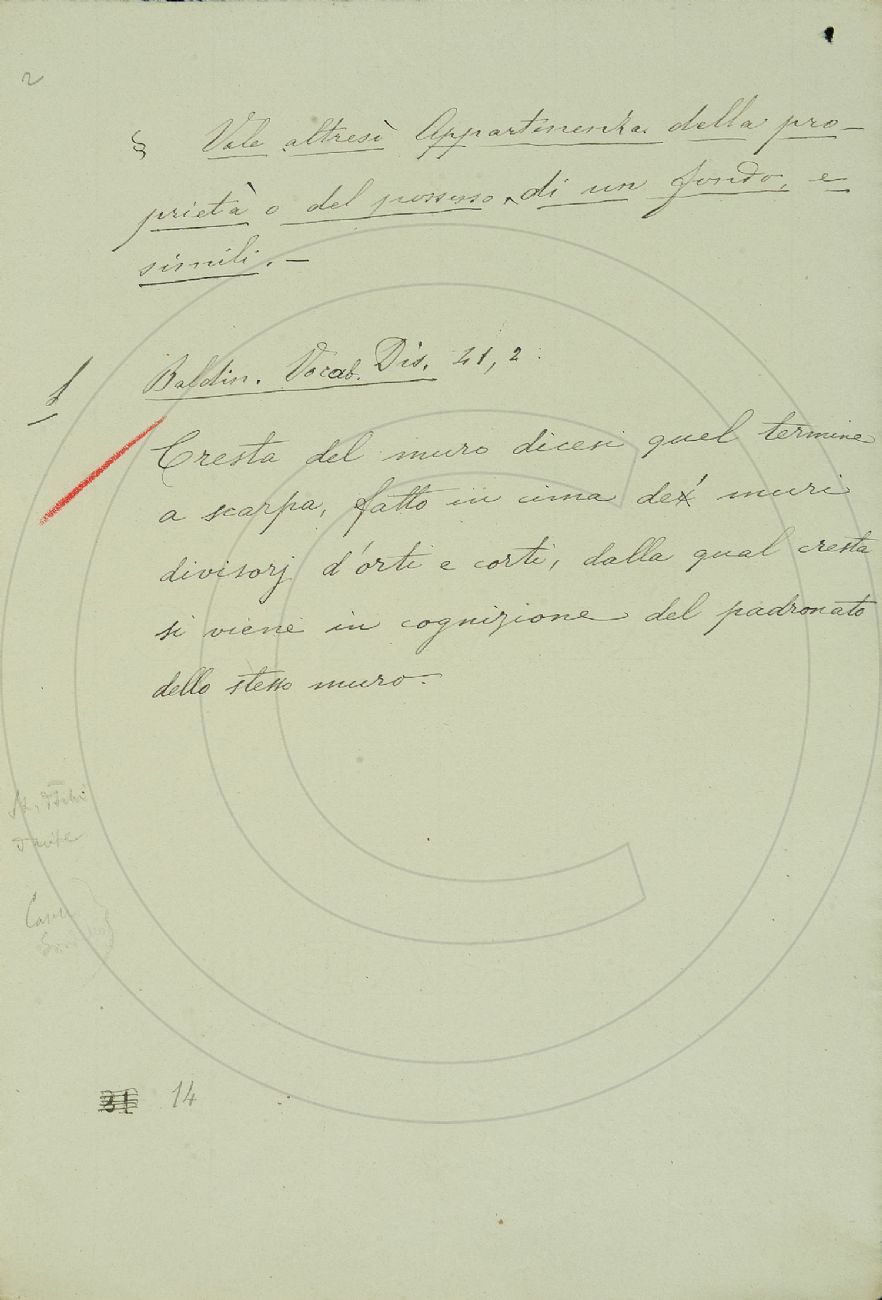 2
§ Vale altresì Appartenenza della pro-
prietà o del possesso, di un fondo, e
simili. -
Baldin. Vocab. Dis. 41, 2.
Cresta del muro dicesi quel termine
a scarpa, fatto in cima de' muri
divisorj d'orti e corti, dalla qual cresta
si viene in cognizione del padronato
dello stesso muro.
31 14